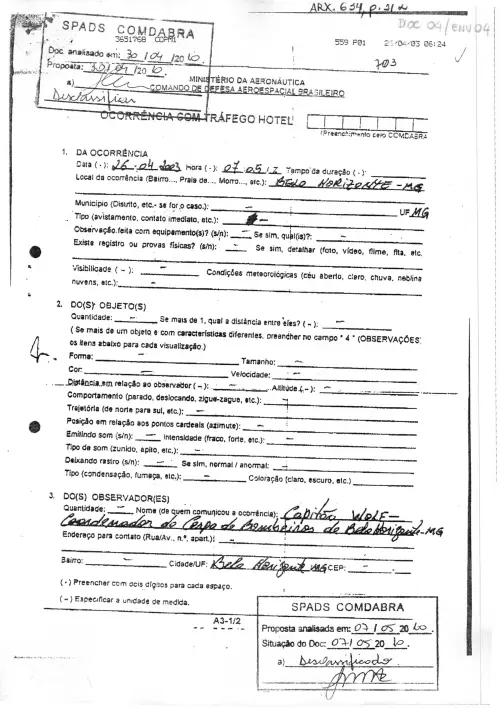 ARX. 654, p. 212
DOC 04/ENV04
SPADS COMDABRA
3651768 COPM1
559 P01 26/04/03 06:24
Doc. analisado em: 30 / 04 /2010
Proposta: 30/04 /2010
703
a)
Desclassificar
MINISTÉRIO DA AERONÁUTICA
COMANDO DE DEFESA AEROESPACIAL BRASILEIRO
OCORRÊNCIA COM TRÁFEGO HOTEL
(Preenchimento pelo COMDABRA
1. DA OCORRÊNCIA
Data (·): 26.04.2003 Hora (·): 07:05/Z Tempo da duração (·): -
Local da ocorrência (Bairro..., Praia de..., Morro..., etc.): BELO HORIZONTE-MG
Município (Distrito, etc.- se for o caso.): - UF MG
Tipo (avistamento, contato imediato, etc.): -
Observação feita com equipamento(s)? (s/n): - Se sim, qual(is)?: -
Existe registro ou provas físicas? (s/n): - Se sim, detalhar (foto, vídeo, filme, fita, etc.
Visibilidade ( ~ ): - Condições meteorológicas (céu aberto, claro, chuva, neblina
nuvens, etc.): -
2. DO(S) OBJETO(S)
Quantidade: - Se mais de 1, qual a distância entre eles? ( ~ ): -
( Se mais de um objeto e com características diferentes, preencher no campo " 4 " (OBSERVAÇÕES)
os itens abaixo para cada visualização.)
Forma: - Tamanho: -
Cor: - Velocidade: -
Distância em relação ao observador ( ~ ): - Altitude ( ~ ): -
Comportamento (parado, deslocando, zigue-zague, etc.): -
Trajetória (de norte para sul, etc.): -
Posição em relação aos pontos cardeais (azimute): -
Emitindo som (s/n): - Intensidade (fraco, forte, etc.): -
Tipo de som (zunido, apito, etc.): -
Deixando rastro (s/n): - Se sim, normal / anormal: -
Tipo (condensação, fumaça, etc.): - Coloração (claro, escuro, etc.)
3. DO(S) OBSERVADOR(ES)
Quantidade: - Nome (de quem comunicou a ocorrência): Capitão WOLF-
Coordenador do Corpo de Bombeiros de Belo Horizonte-MG
Endereço para contato (Rua/Av., n.º, apart.): -
Bairro: Cidade/UF: Belo Horizonte MG CEP: -
(·) Preencher com dois dígitos para cada espaço.
(~) Especificar a unidade de medida.
A3-1/2
SPADS COMDABRA
Proposta analisada em: 07 / 05 2010.
Situação do Doc: 07 / 05 2010.
a) Desclassificado